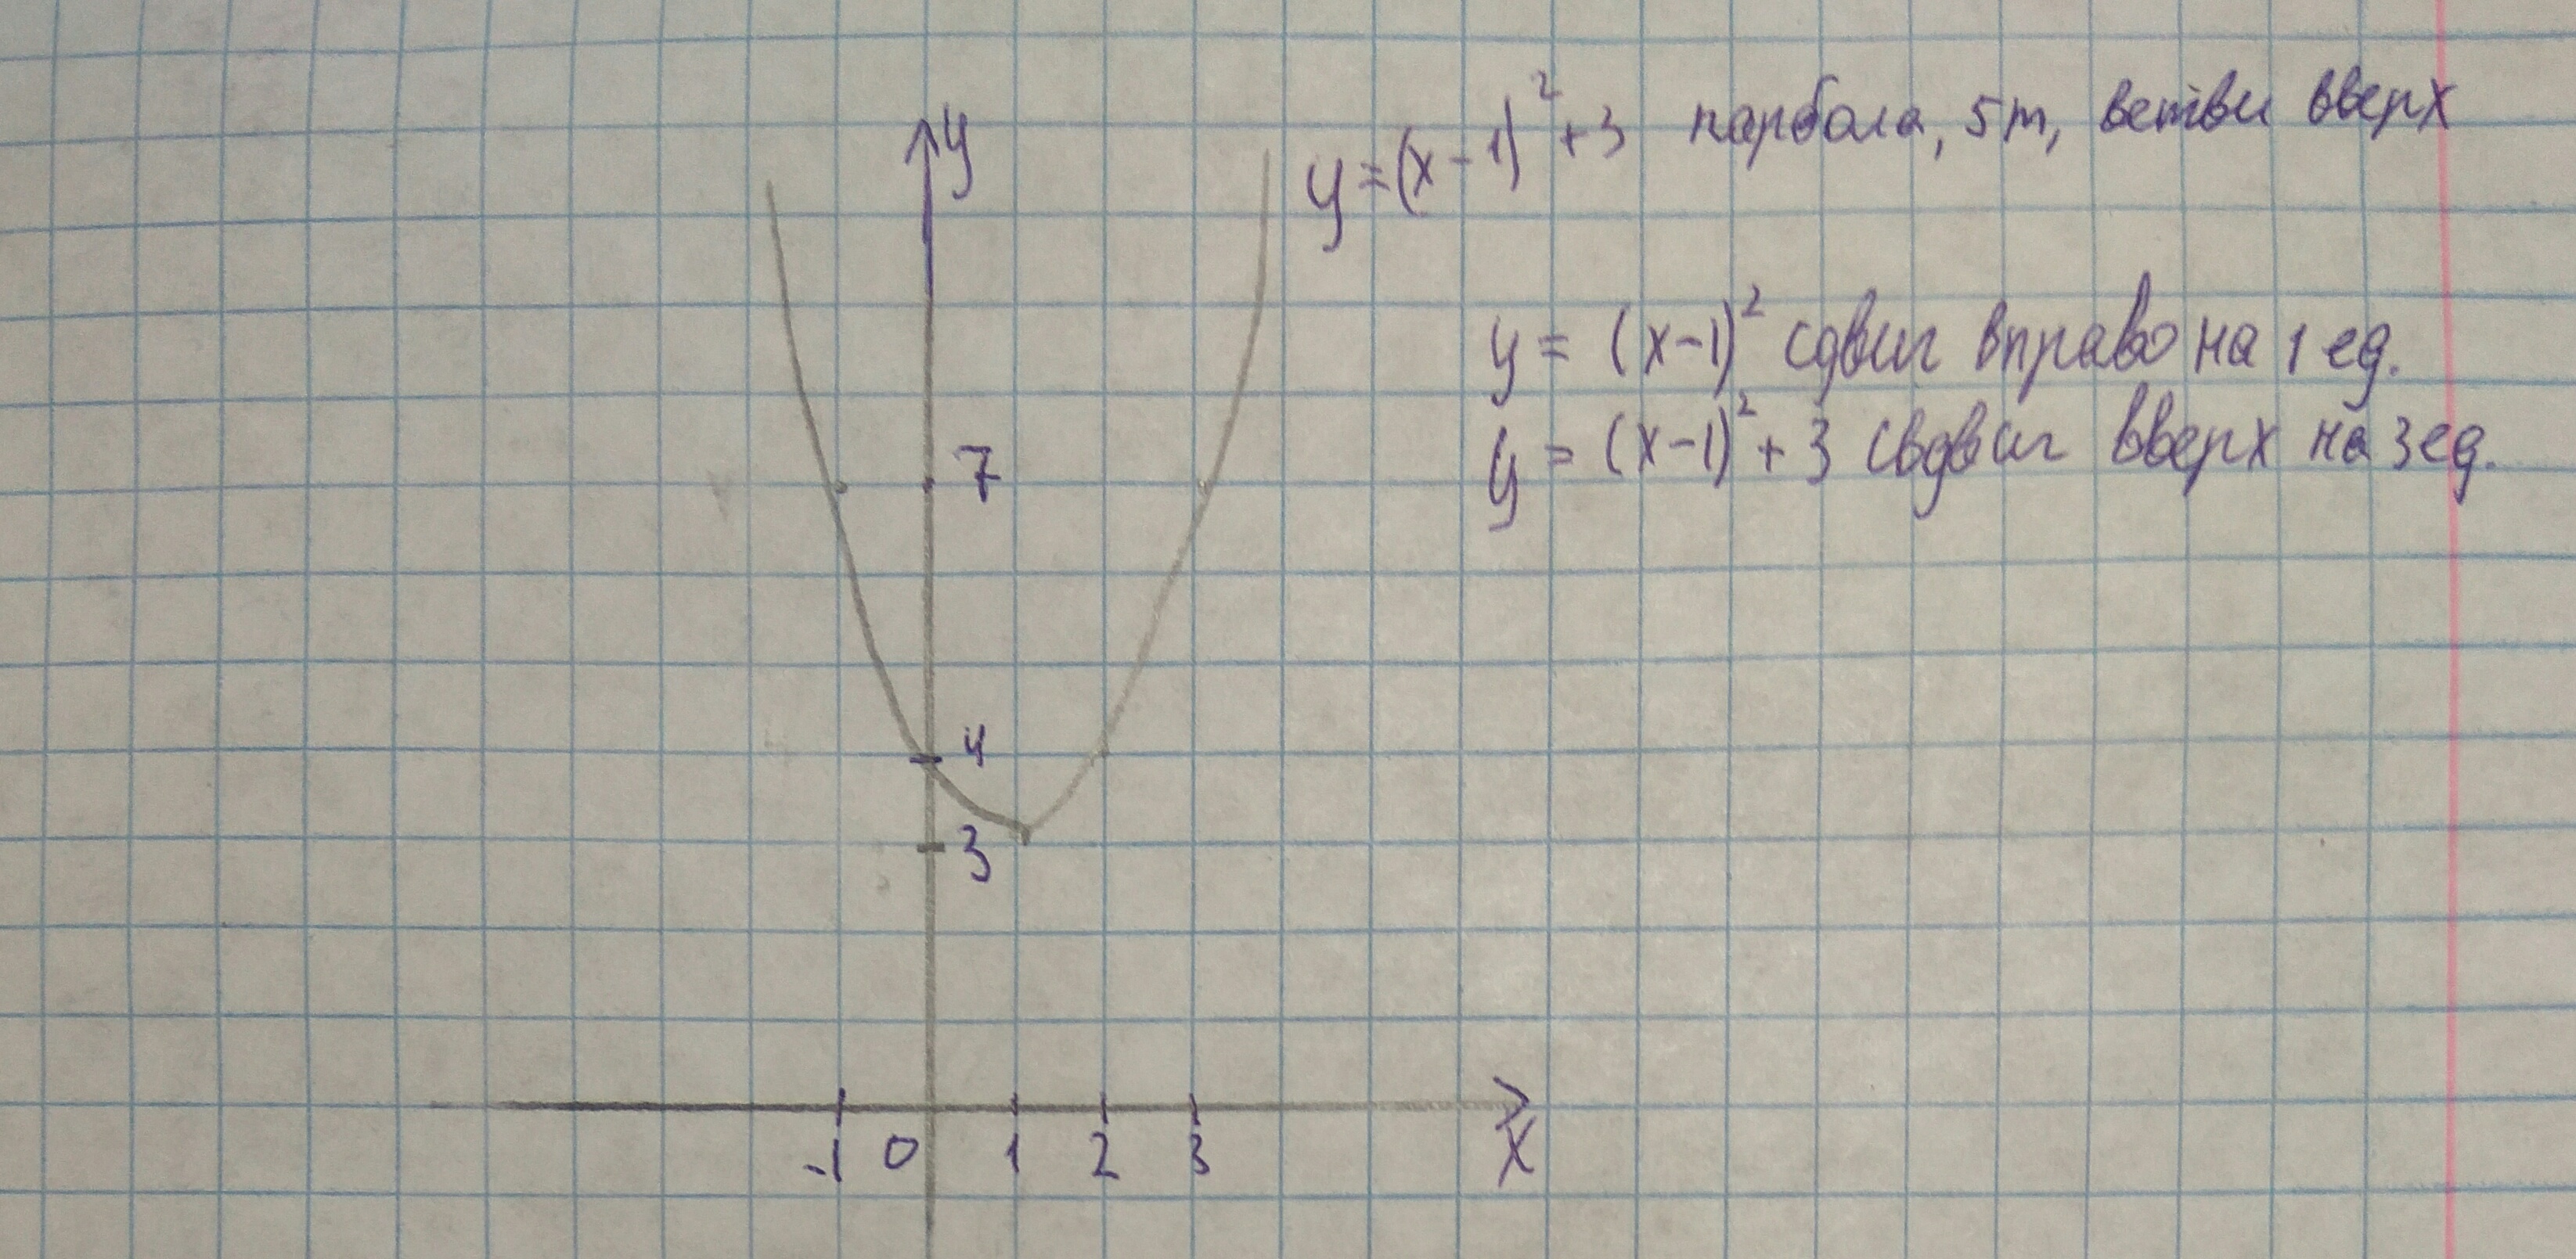 y
y=(x-1)²+3 парбола, 5т, ветви вверх
y = (x-1)² сдвиг вправо на 1 ед.
y = (x-1)²+3 свдвиг вверх на 3 ед.
7
4
3
-1 0 1 2 3 x